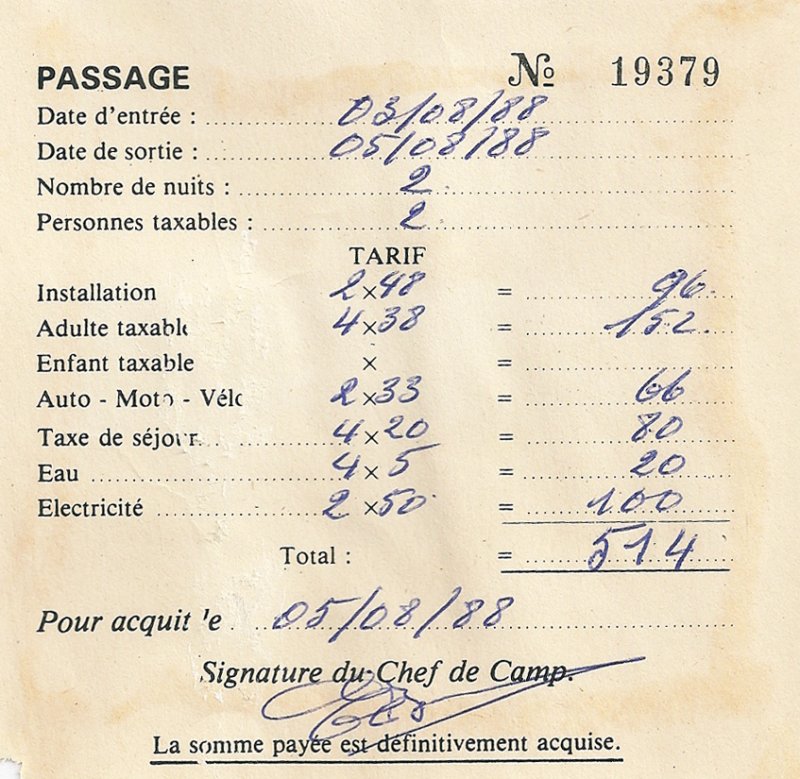 PASSAGE № 19379
Date d'entrée : 03/08/88
Date de sortie : 05/08/88
Nombre de nuits : 2
Personnes taxables : 2
TARIF
Installation 2 × 48 = 96
Adulte taxable 4 × 38 = 152
Enfant taxable × =
Auto - Moto - Vélo 2 × 33 = 66
Taxe de séjour 4 × 20 = 80
Eau 4 × 5 = 20
Electricité 2 × 50 = 100
Total : = 514
Pour acquit le 05/08/88
Signature du Chef de Camp.
La somme payée est définitivement acquise.